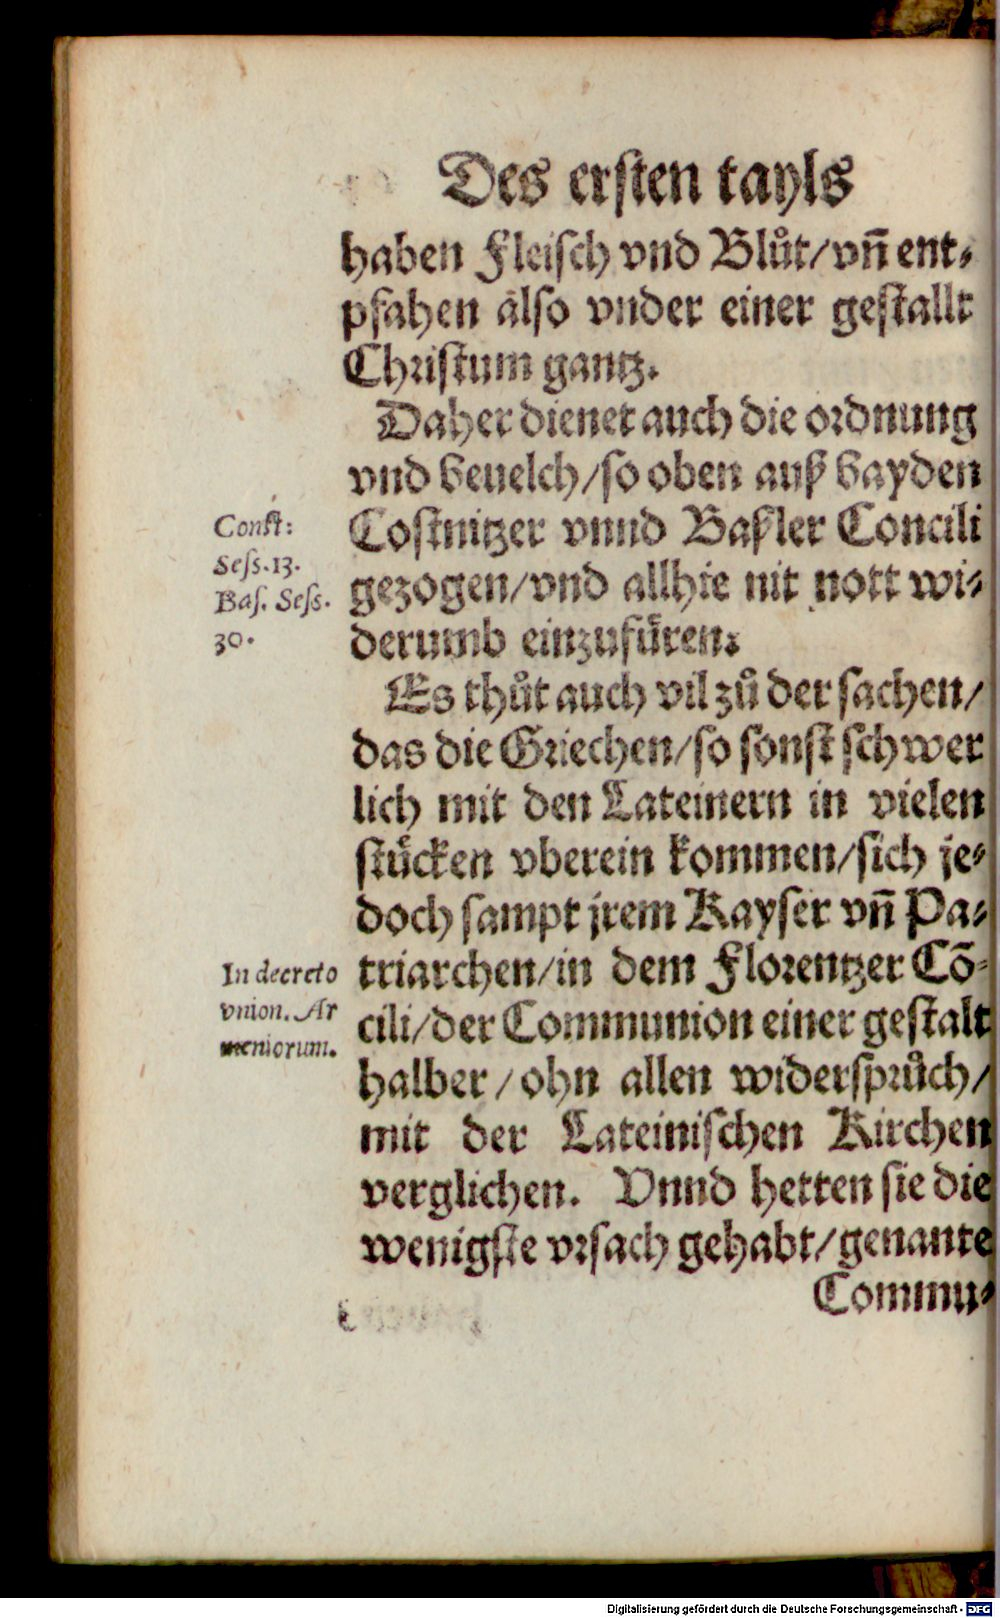 Des ersten tayls
haben Fleisch vnd Blůt/vñ ent⸗
pfahen älso vnder einer gestallt
Christum gantz.
Daher dienet auch die ordnung
vnd beuelch/so oben auß bayden
Costnitzer vnnd Baßler Concili
gezogen/vnd allhie nit nott wi⸗
derumb einzufüren.
Es thůt auch vil zů der sachen/
das die Griechen/so sonst schwer
lich mit den Lateinern in vielen
stücken vberein kommen/sich je⸗
doch sampt jrem Kayser vñ Pa⸗
triarchen/in dem Florentzer Cõ⸗
cili/der Communion einer gestalt
halber/ohn allen widersprůch/
mit der Lateinischen Kirchen
verglichen. Vnnd hetten sie die
wenigste vrsach gehabt/genante
Commu⸗
Const:
Sess.13.
Bas. Sess.
30.
In decreto
vnion. Ar
meniorum.
Digitalisierung gefördert durch die Deutsche Forschungsgemeinschaft - DFG